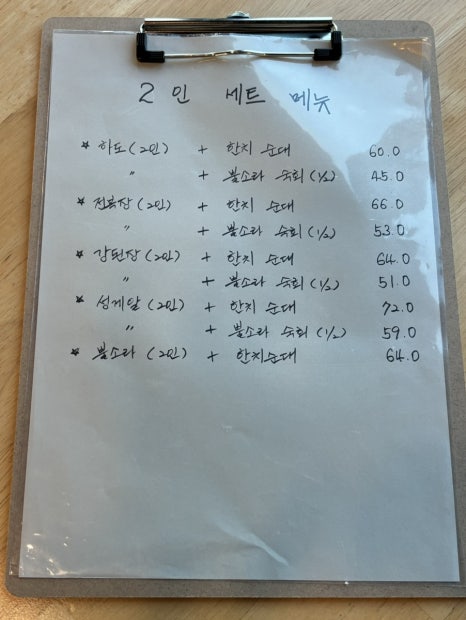 2인 세트 메뉴
* 하도(2인) + 한치 순대 60.0
〃 + 뿔소라 숙회(1/2) 45.0
* 전복삼(2인) + 한치 순대 66.0
〃 + 뿔소라 숙회(1/2) 53.0
* 감된삼(2인) + 한치 순대 64.0
〃 + 뿔소라 숙회(1/2) 51.0
* 성게알(2인) + 한치 순대 72.0
〃 + 뿔소라 숙회(1/2) 59.0
* 뿔소라(2인) + 한치순대 64.0